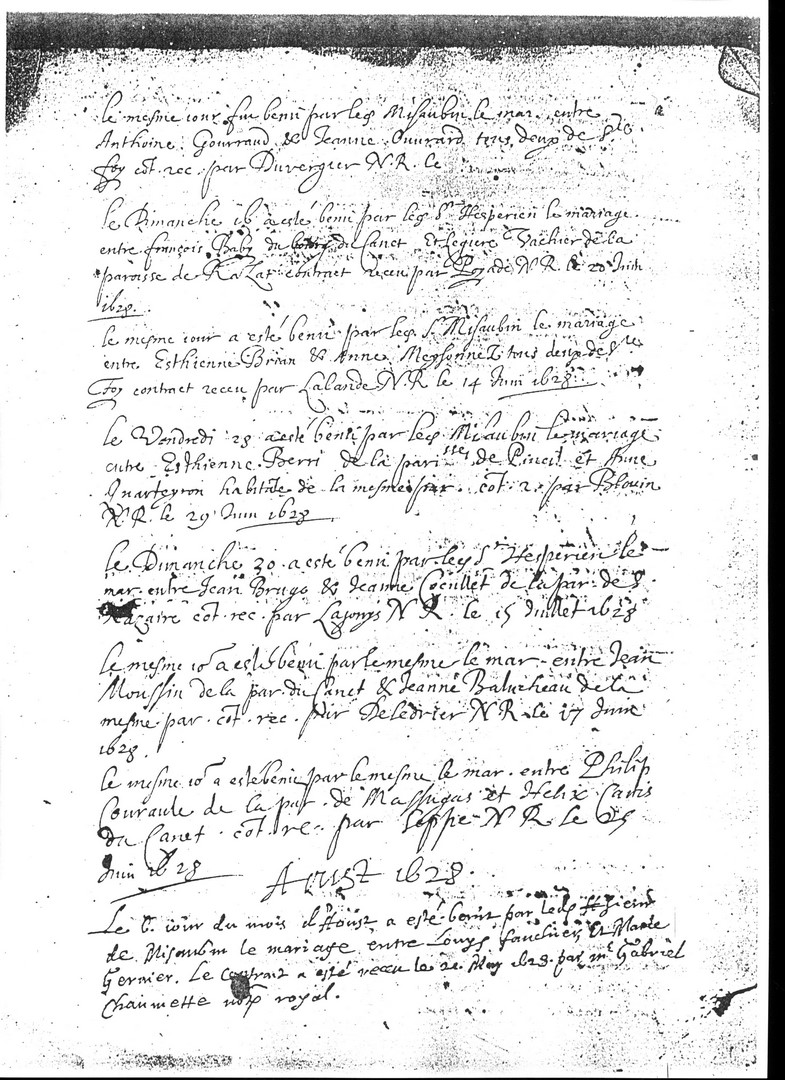 le mesme iour fut beni par le sr Misaubin le mar. entre
Anthoine Gourraud & Jeanne Ouvrard tous deux de Ste
foy cot. rec. par Duvergier N.R. le
le Dimanche 16 a esté beni par le sr Hesperien le mariage
entre françois Baby du bourg du Canet Et Legiere Vachier de la
paroisse de RaZat contract receu par Poyade N.R. le 20 Juin
1628.
le mesme iour a esté beni par le sr Misaubin le mariage
entre Esthienne Brian & Anne MeysonneZ tous deux de Ste
Foy contract receu par Lalande N.R le 14 Juin 1628
le Vendredi 28 a esté beni par le sr Misaubin le mariage
entre Esthienne Berri de la par de et Anne
habitāte de la mesme par. cōt. r. par Blouin
N.R. le 29 Juin 1628
le Dimanche 30 a esté beni par le sr Hesperien le
mar. entre Jean Brugo & Jeanne Coeullet de la par. de S.
Nazaire cōt. rec. par N R. le 15 Juillet 1628
le mesme ior a esté beni par le mesme le mar. entre Jean
Moussin de la par. du Canet & Jeanne Balucheau de la
mesme par. cōt. rec. par Deledrier N R. le 17 Juin
1628.
le mesme ior a esté beni par le mesme le mar. entre Philip
Couraule de la par. de Massugas et Helix
du Canet. cōt. re. par N R le 25
Juin 1628
Aoust 1628.
Le 6. iour du mois d'Aoust a esté benit par le sr
de Misaubin le mariage entre Louys fauchier Et Marie
Gernier. Le Contrait a esté receu le 21 May 1628. par me Gabriel
Chaumette notre royal.